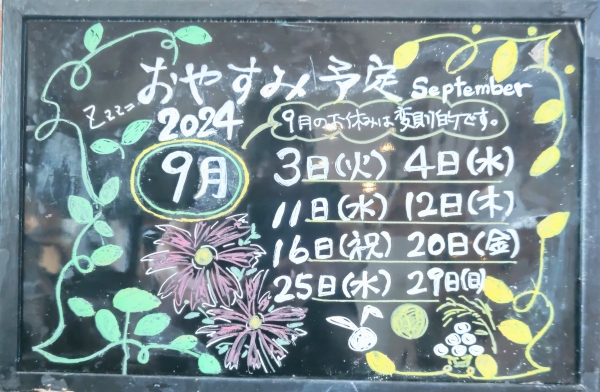 おやすみ予定 September
Zzz=
2024
9月のお休みは変則的です。
9月
3日(火) 4日(水)
11日(水) 12日(木)
16日(祝) 20日(金)
25日(水) 29日(日)